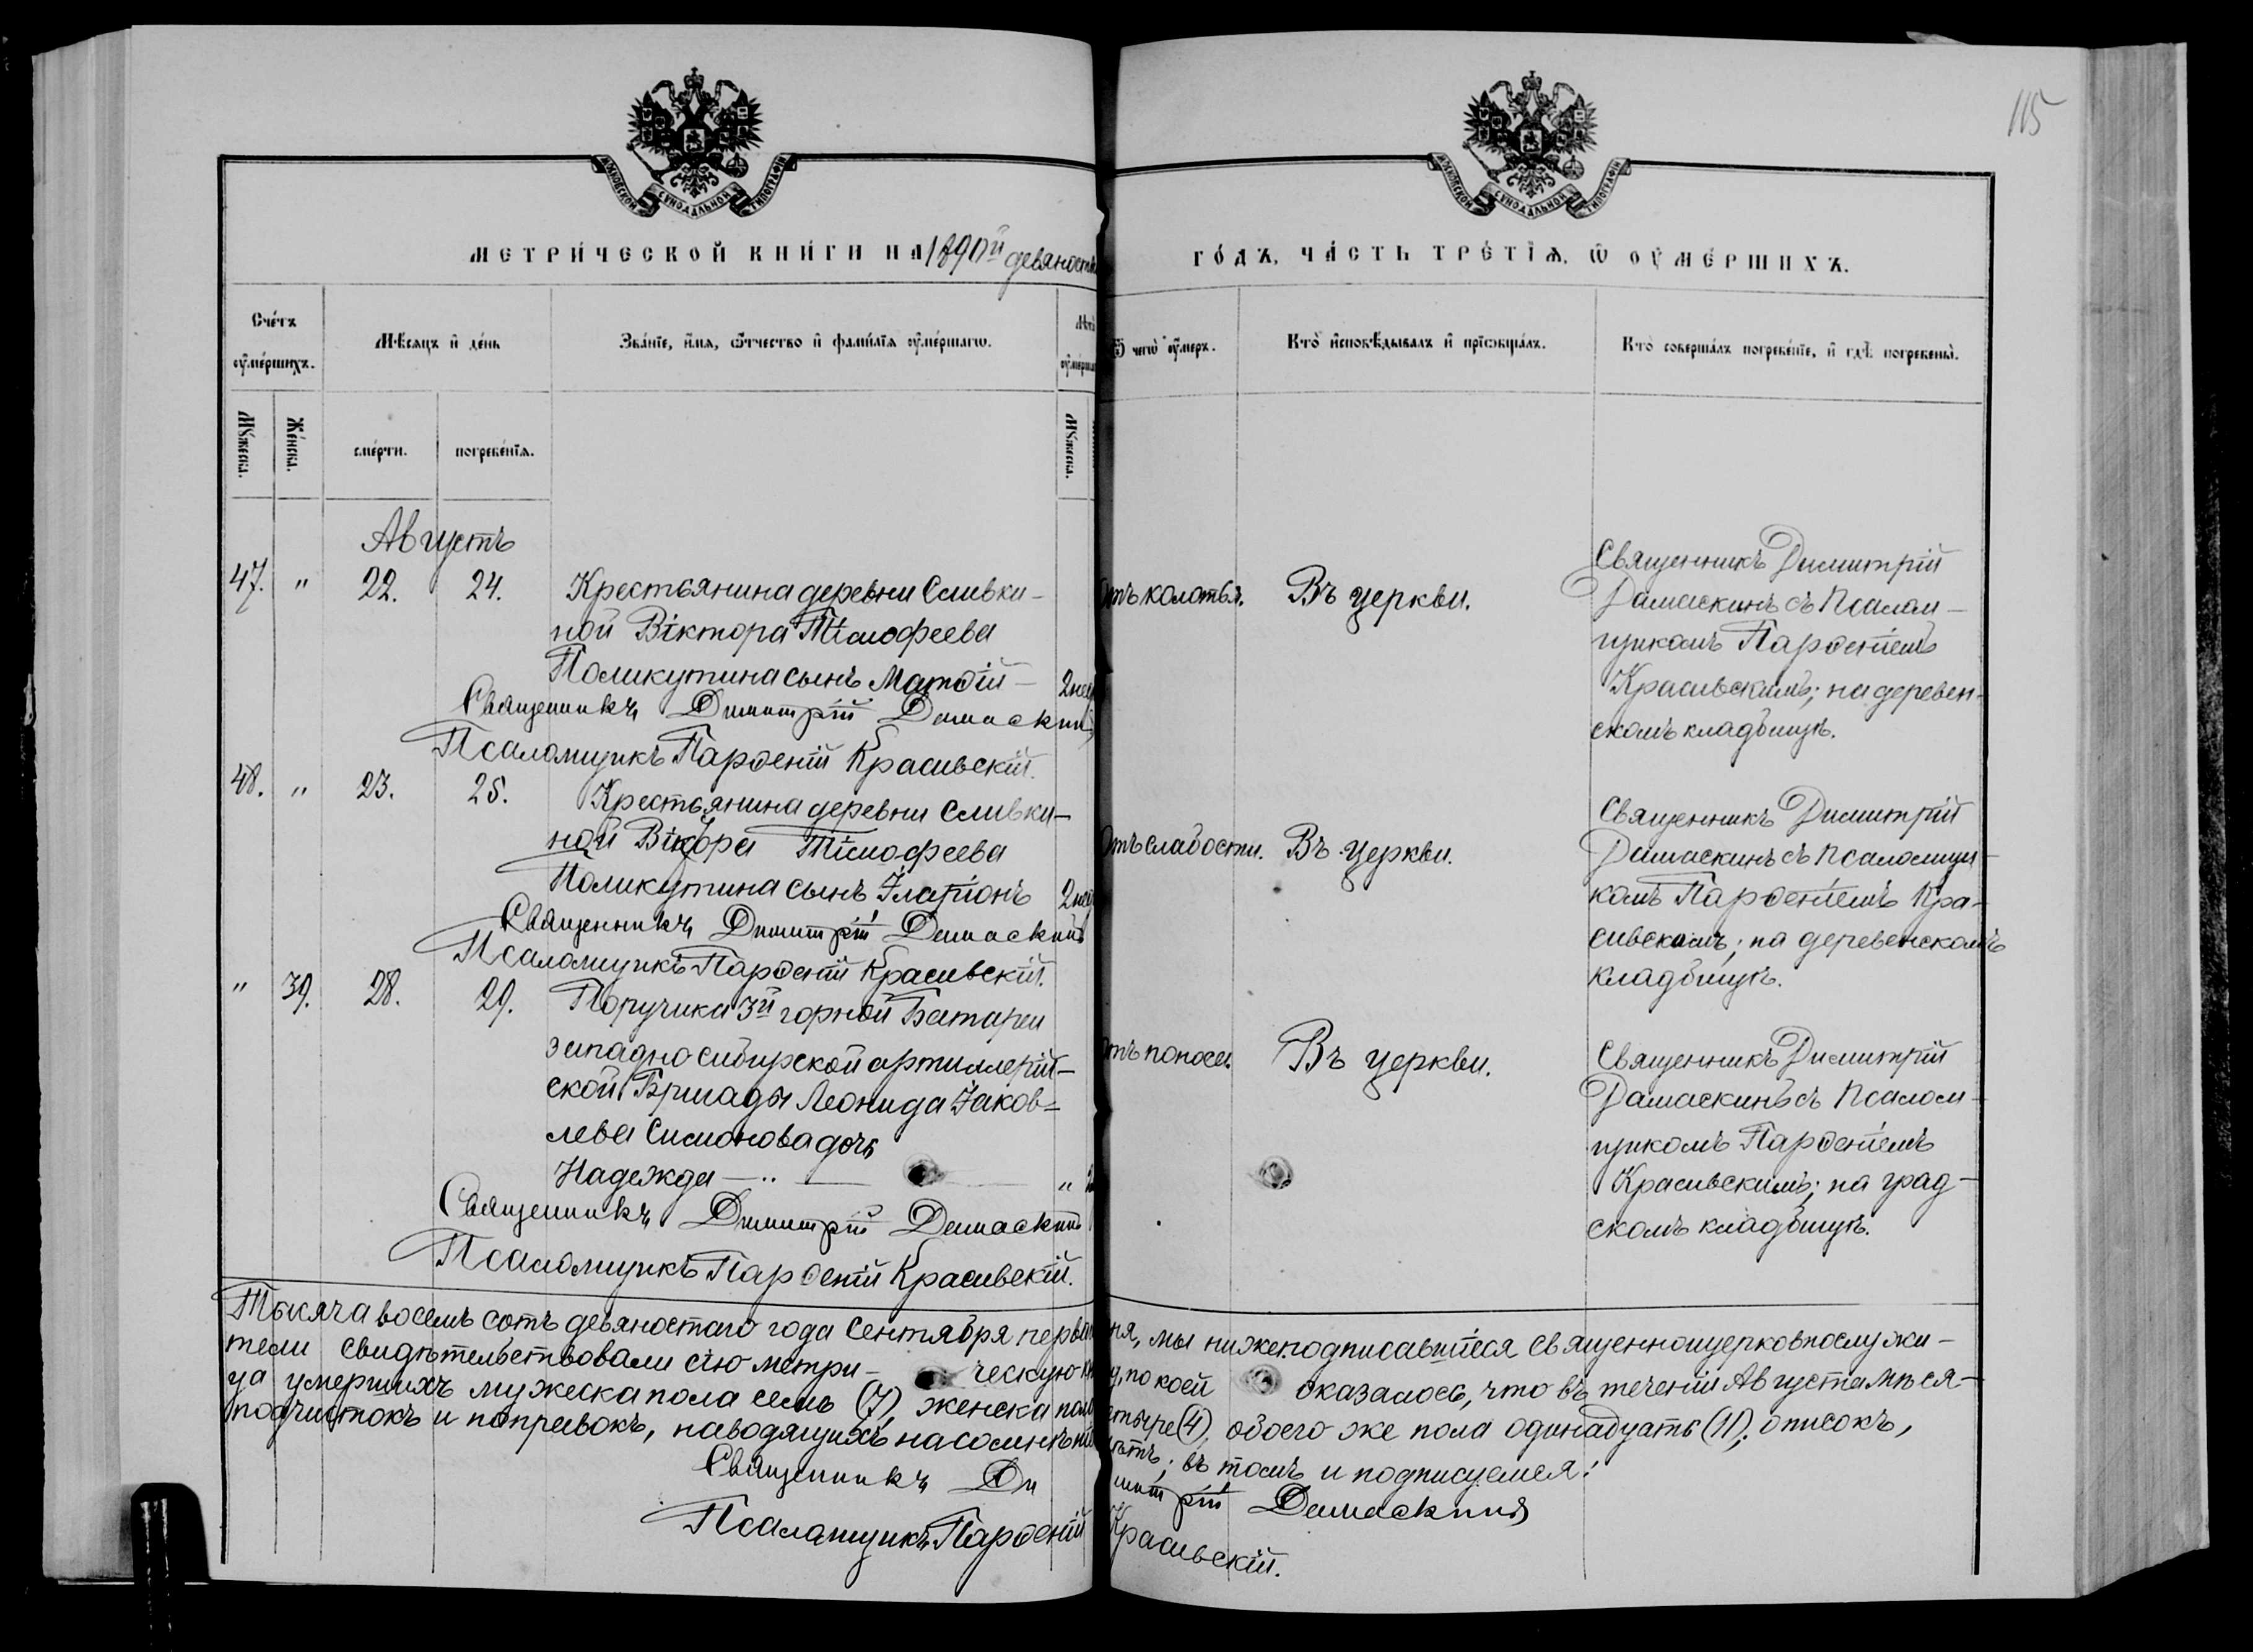 115
МОСКОВСКОЙ СѴНОДАЛЬНОЙ ТИПОГРАФІИ
МОСКОВСКОЙ СѴНОДАЛЬНОЙ ТИПОГРАФІИ
МЕТРИ́ЧЕСКОЙ КНИ́ГИ НА 1890й девяносты
ГО́ДЪ, ЧА́СТЬ ТРЕ́ТЇѦ, Ѽ ОУМЕ́РШИХЪ.
Сче́тъ оумершихъ.
Мѣсяцъ и день
Званіе, имя, отчество и фамилія оумершагѡ.
Ѿ чегѡ оумеръ.
Кто исповѣдывалъ и пріобщалъ.
Кто совершалъ погребеніе, и гдѣ погребены.
Мужеска.
Женска.
смерти.
погребенія.
Мужеска.
Августъ
47. " 22. 24.
Крестьянина деревни Сливки-
ной Віктора Тімофеева
Поликутина сынъ Матѳій - 2 нед
Священникъ Димитрій Дамаскинъ
Псаломщикъ Парѳеній Красивскій.
отъ колотья.
Въ церкви.
Священникъ Димитрій
Дамаскинъ съ Псалом-
щикомъ Парѳеніемъ
Красивскимъ; на деревен-
скомъ кладбищѣ.
48. " 23. 25.
Крестьянина деревни Сливки-
ной Віктора Тімофеева
Поликутина сынъ Іларіонъ 2 нед
Священникъ Димитрій Дамаскинъ
Псаломщикъ Парѳеній Красивскій.
отъ слабости.
Въ церкви.
Священникъ Димитрій
Дамаскинъ съ Псаломщи-
комъ Парѳеніемъ Кра-
сивскимъ; на деревенскомъ
кладбищѣ.
" 39. 28. 29.
Поручика 3й горной Батареи
западно сибирской артиллерій-
ской Бригады Леонида Іаков=
лева Симонова дочь
Надежда "
Священникъ Димитрій Дамаскинъ
Псаломщикъ Парѳеній Красивскій.
отъ поноса.
Въ церкви.
Священникъ Димитрій
Дамаскинъ съ Псалом-
щикомъ Парѳеніемъ
Красивскимъ; на град-
скомъ кладбищѣ.
Тысяча восемь сотъ девяностаго года Сентября перва ня, мы нижеподписавшіеся священноцерковнослужи-
тели свидѣтельствовали сію метри- ческую кн у, по коей оказалось, что въ теченіи Августа мѣся-
ца умершихъ мужеска пола семь (7), женска пола етыре (4), обоего же пола одинадцать (11); описокъ,
подчистокъ и поправокъ, наводящихъ на сомнѣніе ѣтъ; въ томъ и подписуемся:
Священникъ Димитрій Дамаскинъ
Псаломщикъ Парѳеній Красивскій.